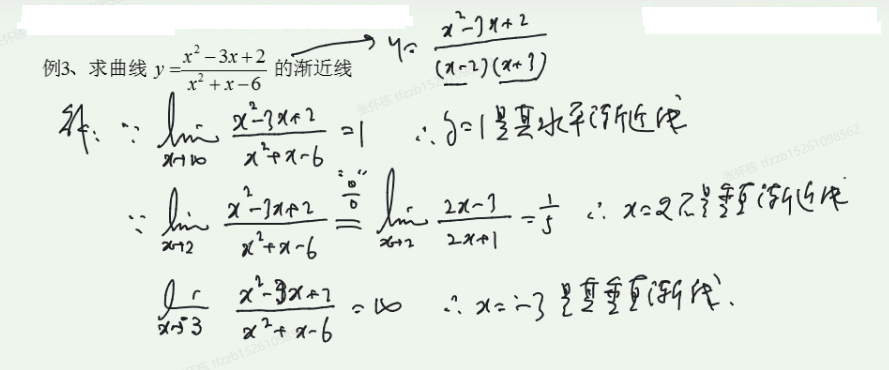 例3、求曲线 y=\frac{x^2-3x+2}{x^2+x-6} 的渐近线 → y=\frac{x^2-3x+2}{(x-2)(x+3)}
解: ∵ \lim_{x→∞} \frac{x^2-3x+2}{x^2+x-6} =1 ∴ y=1是其水平渐近线
∵ \lim_{x→2} \frac{x^2-3x+2}{x^2+x-6} \overset{"\frac{0}{0}"}{=} \lim_{x→2} \frac{2x-3}{2x+1} = \frac{1}{5} ∴ x=2不是垂直渐近线
\lim_{x→-3} \frac{x^2-3x+2}{x^2+x-6} = ∞ ∴ x=-3是其垂直渐近线.
张怀栋 tfzzb15261098562